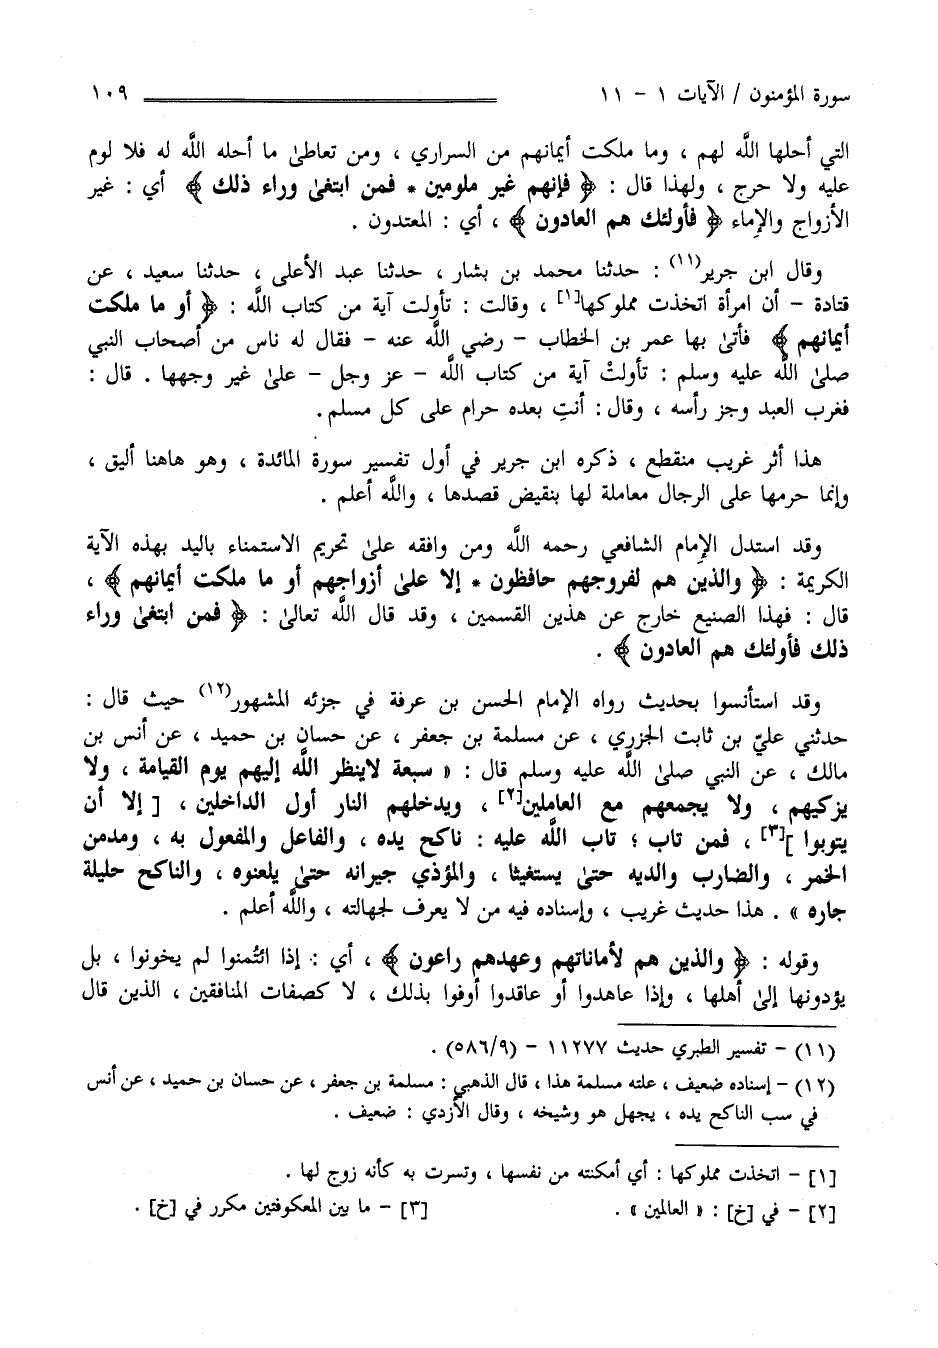 سورة المؤمنون / الآيات ١ - ١١ ١٠٩
التي أحلها اللَّه لهم ، وما ملكت أيمانهم من السراري ، ومن تعاطىٰ ما أحله اللَّه له فلا لوم
عليه ولا حرج ، ولهذا قال : ﴿ فإنهم غير ملومين * فمن ابتغىٰ وراء ذلك ﴾ أي : غير
الأزواج والإماء ﴿ فأولئك هم العادون ﴾ ، أي : المعتدون .
وقال ابن جرير(١١) : حدثنا محمد بن بشار ، حدثنا عبد الأعلى ، حدثنا سعيد ، عن
قتادة - أن امرأة اتخذت مملوكها[١] ، وقالت : تأولت آية من كتاب اللَّه : ﴿ أو ما ملكت
أيمانهم ﴾ فأتىٰ بها عمر بن الخطاب - رضي اللَّه عنه - فقال له ناس من أصحاب النبي
صلىٰ اللَّه عليه وسلم : تأولتْ آية من كتاب اللَّه - عز وجل - علىٰ غير وجهها . قال :
فغرب العبد وجز رأسه ، وقال : أنتِ بعده حرام على كل مسلم .
هذا أثر غريب منقطع ، ذكره ابن جرير في أول تفسير سورة المائدة ، وهو هاهنا أليق ،
وإنما حرمها على الرجال معاملة لها بنقيض قصدها ، واللَّه أعلم .
وقد استدل الإمام الشافعي رحمه اللَّه ومن وافقه علىٰ تحريم الاستمناء باليد بهذه الآية
الكريمة : ﴿ والذين هم لفروجهم حافظون * إلا علىٰ أزواجهم أو ما ملكت أيمانهم ﴾ ،
قال : فهذا الصنيع خارج عن هذين القسمين ، وقد قال اللَّه تعالىٰ : ﴿ فمن ابتغىٰ وراء
ذلك فأولئك هم العادون ﴾ .
وقد استأنسوا بحديث رواه الإمام الحسن بن عرفة في جزئه المشهور(١٢) حيث قال :
حدثني عليّ بن ثابت الجزري ، عن مسلمة بن جعفر ، عن حسان بن حميد ، عن أنس بن
مالك ، عن النبي صلىٰ اللَّه عليه وسلم قال : « سبعة لاينظر اللَّه إليهم يوم القيامة ، ولا
يزكيهم ، ولا يجمعهم مع العاملين[٢] ، ويدخلهم النار أول الداخلين ، [ إلا أن
يتوبوا ][٣] ، فمن تاب ؛ تاب اللَّه عليه : ناكح يده ، والفاعل والمفعول به ، ومدمن
الخمر ، والضارب والديه حتىٰ يستغيثا ، والمؤذي جيرانه حتىٰ يلعنوه ، والناكح حليلة
جاره » . هذا حديث غريب ، وإسناده فيه من لا يعرف لجهالته ، واللَّه أعلم .
وقوله : ﴿ والذين هم لأماناتهم وعهدهم راعون ﴾ ، أي : إذا ائتُمنوا لم يخونوا ، بل
يؤدونها إلىٰ أهلها ، وإذا عاهدوا أو عاقدوا أوفوا بذلك ، لا كصفات المنافقين ، الذين قال
(١١) - تفسير الطبري حديث ١١٢٧٧ - (٥٨٦/٩) .
(١٢) - إسناده ضعيف ، علته مسلمة هذا ، قال الذهبي : مسلمة بن جعفر ، عن حسان بن حميد ، عن أنس
في سب الناكح يده ، يجهل هو وشيخه ، وقال الأزدي : ضعيف .
[١] - اتخذت مملوكها : أي أمكنته من نفسها ، وتسرت به كأنه زوج لها .
[٢] - في [خ] : « العالمين » . [٣] - ما بين المعكوفتين مكرر في [خ] .